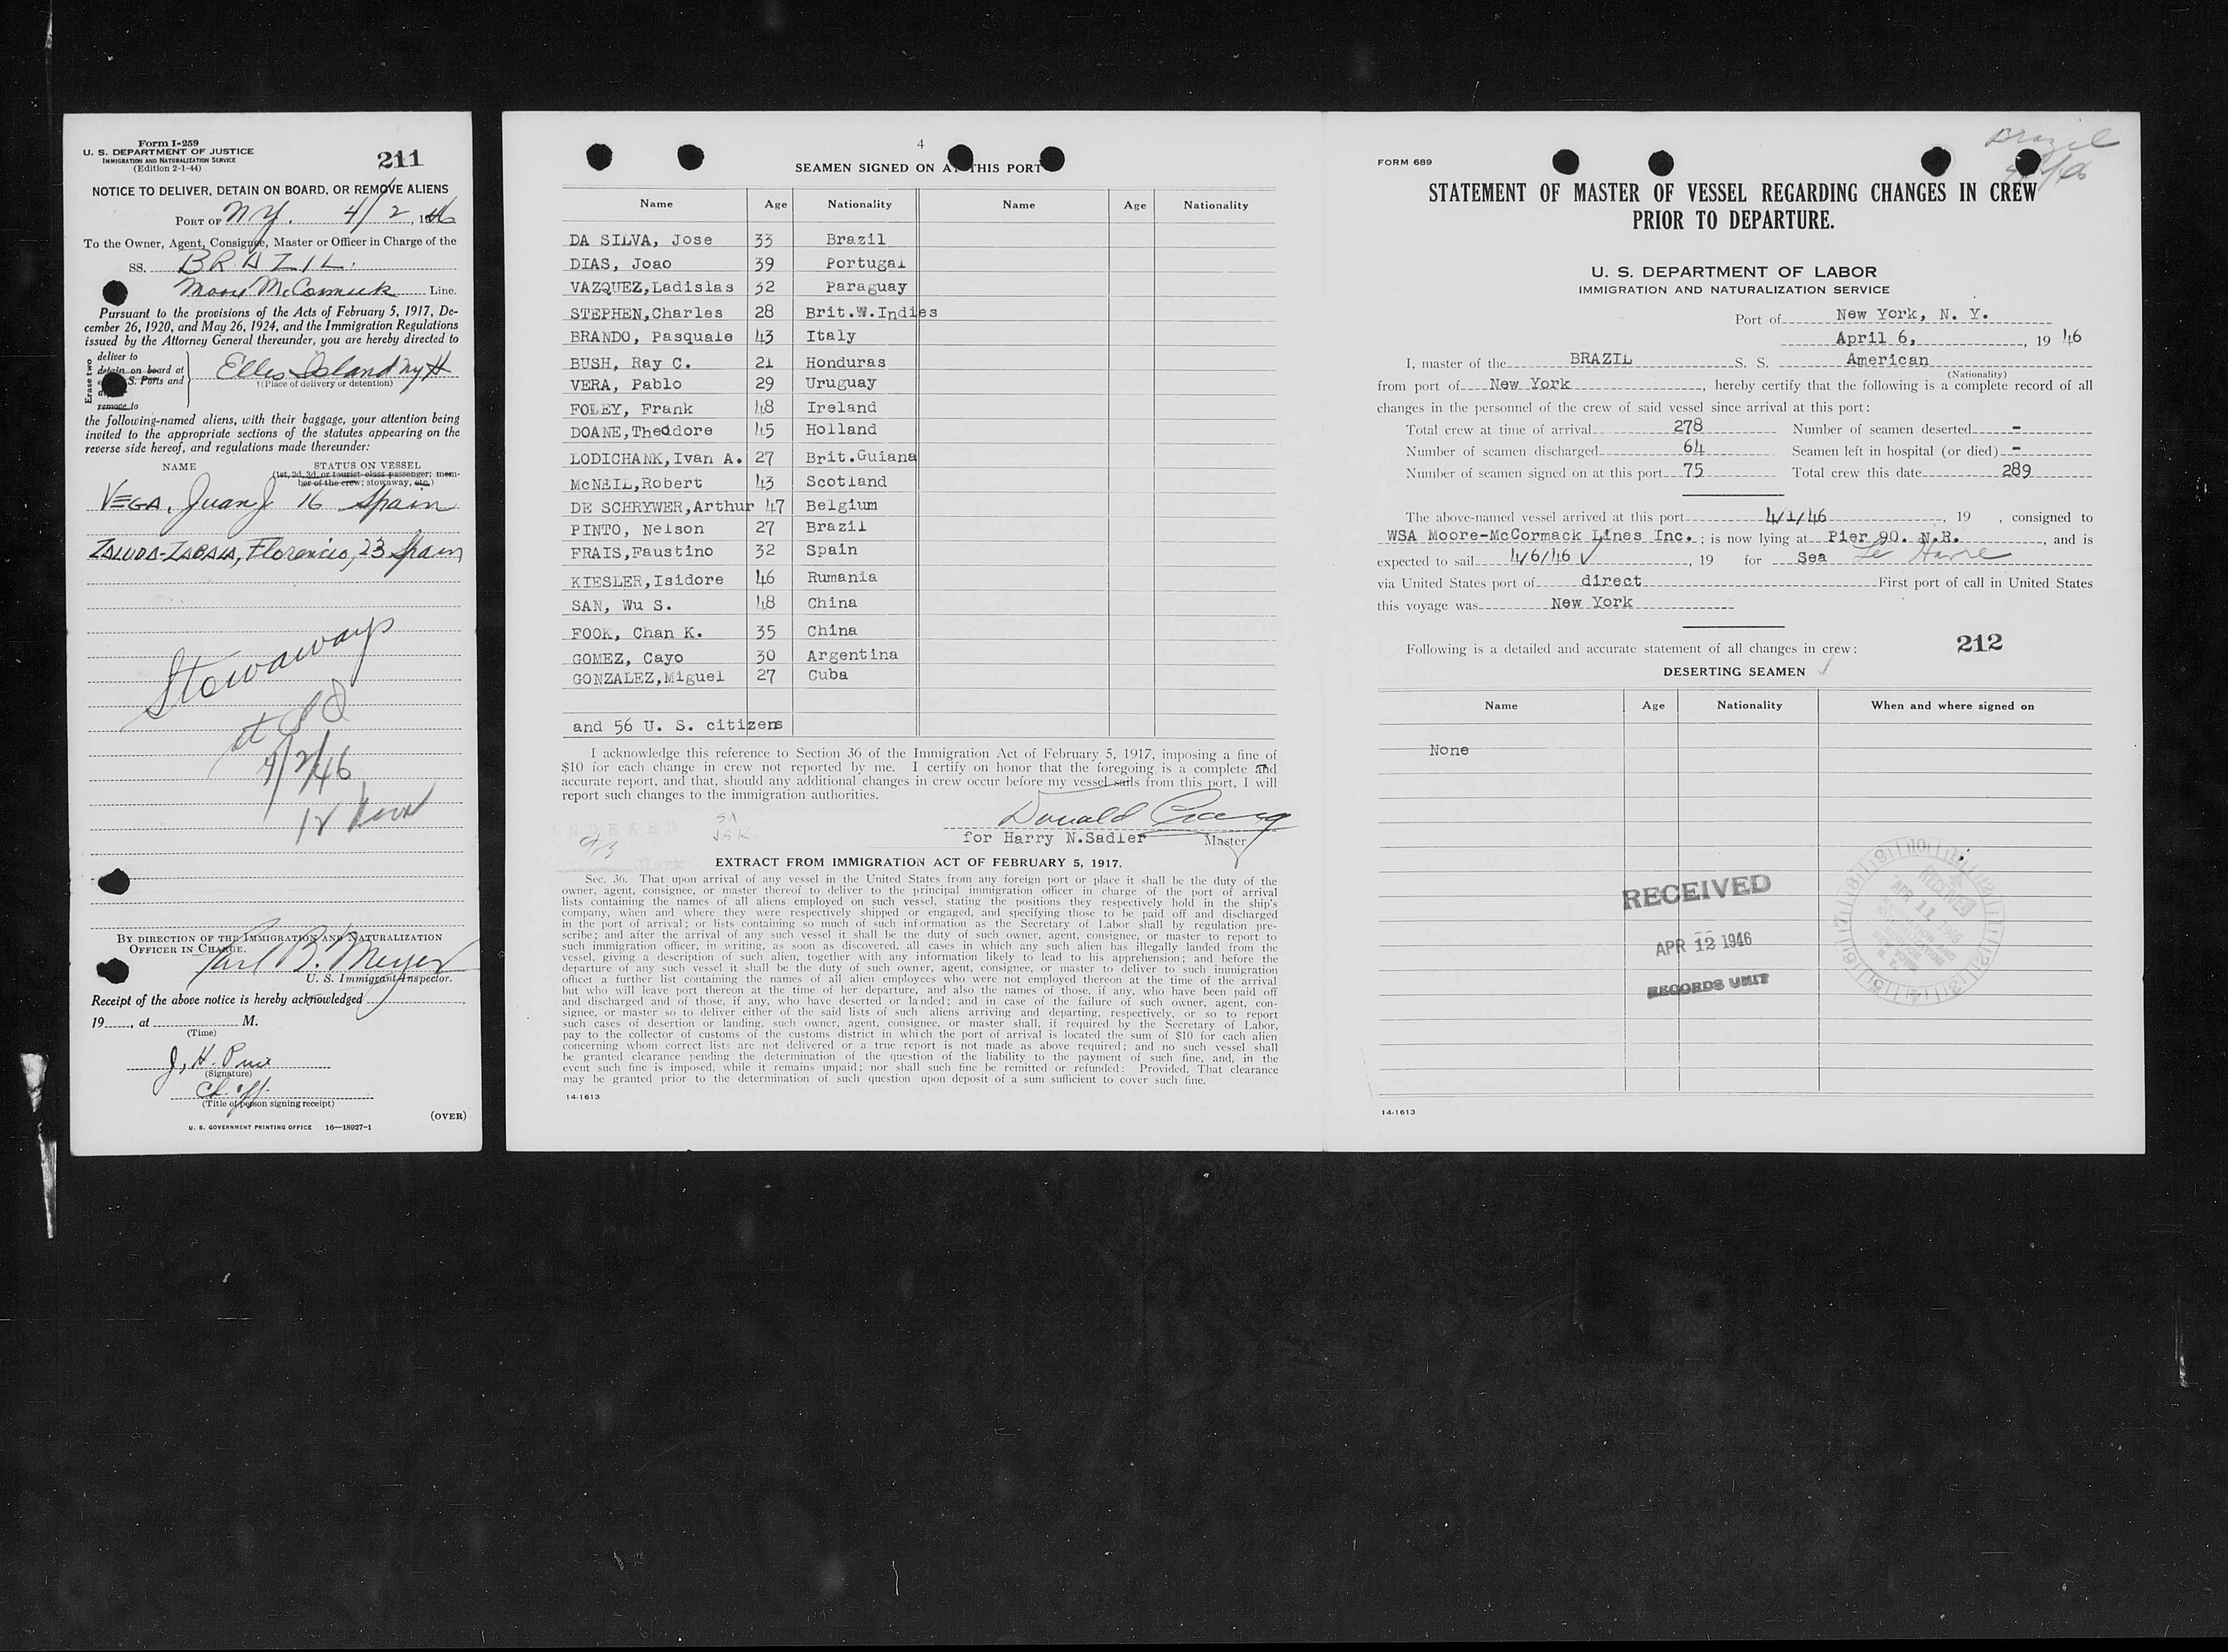 Form I-259
U. S. DEPARTMENT OF JUSTICE
IMMIGRATION AND NATURALIZATION SERVICE
(Edition 2-1-44)
211
NOTICE TO DELIVER, DETAIN ON BOARD, OR REMOVE ALIENS
PORT OF N Y. 4/2, 1946
To the Owner, Agent, Consignee, Master or Officer in Charge of the
SS. BRAZIL.
Moore McCormick Line.
Pursuant to the provisions of the Acts of February 5, 1917, De-
cember 26, 1920, and May 26, 1924, and the Immigration Regulations
issued by the Attorney General thereunder, you are hereby directed to
Erase two
deliver to
detain on board at
S. Ports and
remove to
Ellis Island NYH
(Place of delivery or detention)
the following-named aliens, with their baggage, your attention being
invited to the appropriate sections of the statutes appearing on the
reverse side hereof, and regulations made thereunder:
NAME STATUS ON VESSEL
(1st, 2d, 3d, or tourist class passenger; mem-
ber of the crew; stowaway, etc.)
VEGA, Juan J 16 Spain
ZALUDA-ZABALA, Florencio, 23 Spain
Stowaways
4/2/46
12 Noon
BY DIRECTION OF THE IMMIGRATION AND NATURALIZATION
OFFICER IN CHARGE.
B. Meyer
U. S. Immigrant Inspector.
Receipt of the above notice is hereby acknowledged
19, at M.
(Time)
J. H.
(Signature)
Ch. Off.
(Title of person signing receipt)
(OVER)
U. S. GOVERNMENT PRINTING OFFICE 16—18927-1
4
SEAMEN SIGNED ON AT THIS PORT
Name Age Nationality Name Age Nationality
DA SILVA, Jose 33 Brazil
DIAS, Joao 39 Portugal
VAZQUEZ,Ladislas 32 Paraguay
STEPHEN,Charles 28 Brit.W.Indies
BRANDO, Pasquale 43 Italy
BUSH, Ray C. 21 Honduras
VERA, Pablo 29 Uruguay
FOLEY, Frank 48 Ireland
DOANE,Theodore 45 Holland
LODICHANK,Ivan A. 27 Brit.Guiana
McNEIL,Robert 43 Scotland
DE SCHRYWER,Arthur 47 Belgium
PINTO, Nelson 27 Brazil
FRAIS,Faustino 32 Spain
KIESLER,Isidore 46 Rumania
SAN, Wu S. 48 China
FOOK, Chan K. 35 China
GOMEZ, Cayo 30 Argentina
GONZALEZ,Miguel 27 Cuba
and 56 U. S. citizens
I acknowledge this reference to Section 36 of the Immigration Act of February 5, 1917, imposing a fine of
$10 for each change in crew not reported by me. I certify on honor that the foregoing is a complete and
accurate report, and that, should any additional changes in crew occur before my vessel sails from this port, I will
report such changes to the immigration authorities.
INDEXED
Donald Craig
for Harry N.Sadler Master
EXTRACT FROM IMMIGRATION ACT OF FEBRUARY 5, 1917.
Sec. 36. That upon arrival of any vessel in the United States from any foreign port or place it shall be the duty of the
owner, agent, consignee, or master thereof to deliver to the principal immigration officer in charge of the port of arrival
lists containing the names of all aliens employed on such vessel, stating the positions they respectively hold in the ship's
company, when and where they were respectively shipped or engaged, and specifying those to be paid off and discharged
in the port of arrival; or lists containing so much of such information as the Secretary of Labor shall by regulation pre-
scribe; and after the arrival of any such vessel it shall be the duty of such owner, agent, consignee, or master to report to
such immigration officer, in writing, as soon as discovered, all cases in which any such alien has illegally landed from the
vessel, giving a description of such alien, together with any information likely to lead to his apprehension; and before the
departure of any such vessel it shall be the duty of such owner, agent, consignee, or master to deliver to such immigration
officer a further list containing the names of all alien employees who were not employed thereon at the time of the arrival
but who will leave port thereon at the time of her departure, and also the names of those, if any, who have been paid off
and discharged and of those, if any, who have deserted or landed; and in case of the failure of such owner, agent, con-
signee, or master so to deliver either of the said lists of such aliens arriving and departing, respectively, or so to report
such cases of desertion or landing, such owner, agent, consignee, or master shall, if required by the Secretary of Labor,
pay to the collector of customs of the customs district in which the port of arrival is located the sum of $10 for each alien
concerning whom correct lists are not delivered or a true report is not made as above required; and no such vessel shall
be granted clearance pending the determination of the question of the liability to the payment of such fine, and, in the
event such fine is imposed, while it remains unpaid; nor shall such fine be remitted or refunded: Provided, That clearance
may be granted prior to the determination of such question upon deposit of a sum sufficient to cover such fine.
14-1613
Brazil
FORM 689
STATEMENT OF MASTER OF VESSEL REGARDING CHANGES IN CREW
PRIOR TO DEPARTURE.
U. S. DEPARTMENT OF LABOR
IMMIGRATION AND NATURALIZATION SERVICE
Port of New York, N. Y.
April 6, , 19 46
I, master of the BRAZIL S. S. American
(Nationality)
from port of New York, hereby certify that the following is a complete record of all
changes in the personnel of the crew of said vessel since arrival at this port:
Total crew at time of arrival 278 Number of seamen deserted -
Number of seamen discharged 64 Seamen left in hospital (or died) -
Number of seamen signed on at this port 75 Total crew this date 289
The above-named vessel arrived at this port 4/1/46, 19 , consigned to
WSA Moore-McCormack Lines Inc.; is now lying at Pier 90. N.R., and is
expected to sail 4/6/46 ✓, 19 for Sea Le Havre
via United States port of direct First port of call in United States
this voyage was New York
Following is a detailed and accurate statement of all changes in crew: 212
DESERTING SEAMEN
Name Age Nationality When and where signed on
None
RECEIVED
APR 12 1946
RECORDS UNIT
RECEIVED
APR 11 1946
14-1613